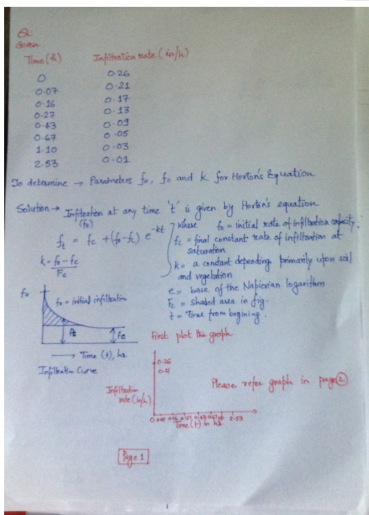 Q
Given
Time (h) Infiltration rate (in/h)
0 0.26
0.07 0.21
0.16 0.17
0.27 0.13
0.43 0.09
0.67 0.05
1.10 0.03
2.53 0.01
To determine → Parameters fo, fc and k for Horton's Equation
Solution → Infiltration at any time 't' is given by Horton's equation
ft = fc + (fo - fc) e^-kt
k = fo - fc / Fc
where fo = initial rate of infiltration capacity.
fc = final constant rate of infiltration at saturation
k = a constant depending primarily upon soil and vegetation
e = base of the Napierian logarithm
Fc = shaded area in fig.
t = Time from begining.
fo
fo = initial infiltration
fc
→ Time (t), hr
Infiltration Curve
First plot the graph
0.26
0.21
Infiltration rate (in/h)
Time (t) in hr.
Please refer graph in page 2
Page 1